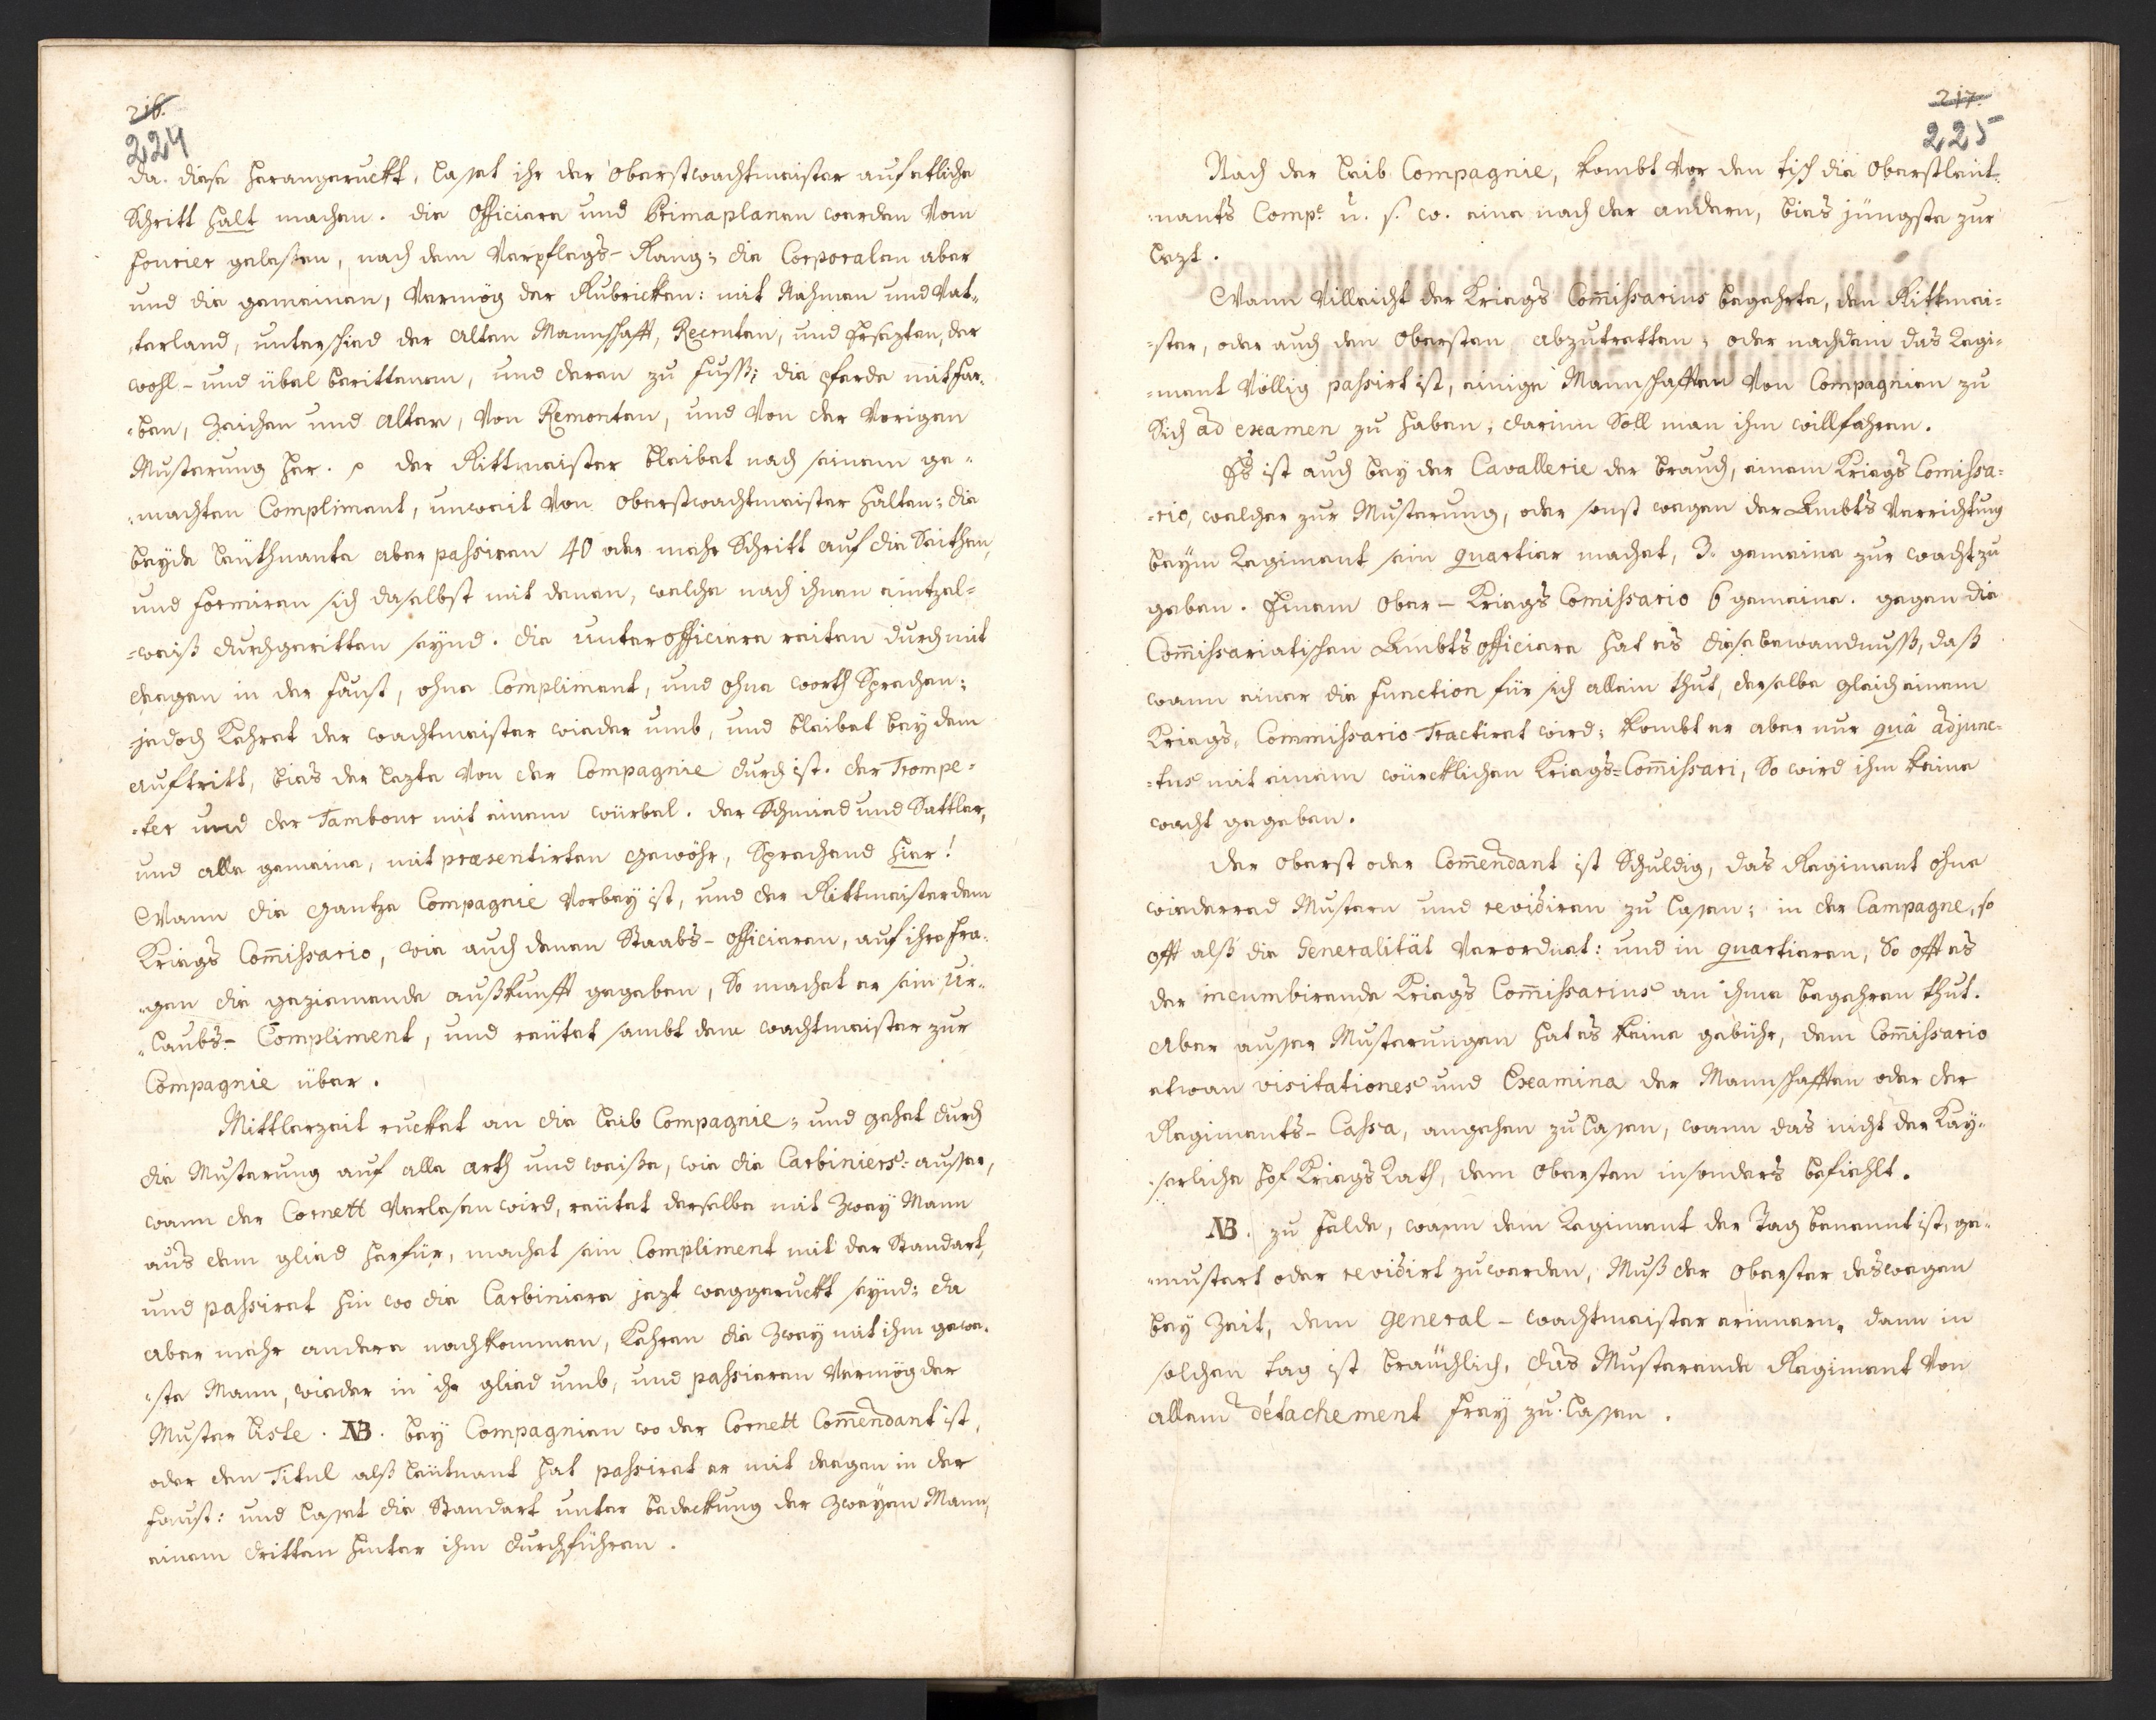 216.
224
da. diese herangeruckt, lasset ihr der Obristwachtmeister auf etliche
Schritt halt machen. die Officiere und Primaplanen werden vom
Fourier gelesen, nach dem Verpflegs-Rang; die Corporalen aber
und die gemeinen, vermög der Rubricken: mit Nahmen und Vat-
-terland, unterschied der alten Mannschafft, Recruten, und Ersezten, der
wohl- und übel berittenen, und deren zu fuss; die pferde mit far-
-ben, Zeichen und Alter, von Remonten, und von der vorigen
Musterung her. der Rittmeister bleibet nach seinem ge-
-machten Compliment, unweit von Obristwachtmeister halten: die
beyde Leuthnante aber passieren 40 oder mehr Schritt auf die Seithen,
und formiren sich daselbst mit denen, welche nach ihnen eintzel-
-weiß durchgeritten seynd. die Unterofficiere reiten durch mit
degen in der faust, ohne Compliment, und ohne worth Sprechen;
jedoch kehret der wachtmeister wieder umb, und bleibet bey dem
auftritt, bies der lezte von der Compagnie durch ist. der Trompe-
-ter und der Tambour mit einem würbel. der Schmied und Sattler,
und alle gemeine, mit præsentirten gewöhr, Sprechend hier!
Wann die gantze Compagnie vorbey ist, und der Rittmeister dem
Kriegs Com̄issario, wie auch denen Staabs-Officieren, auf ihre fra-
-gen die geziemende außkunfft gegeben, So machet er sein Ur-
-laubs-Compliment, und reütet sambt dem wachtmeister zur
Compagnie über.
Mittlerzeit rucket an die Leib Compagnie; und gehet durch
die Musterung auf alle arth und weiße, wie die Carbiniers: ausser,
wann der Cornett verlesen wird, reütet derselbe mit zwey Mann
aus dem glied herfür, machet sein Compliment mit der Standart,
und passiret hin wo die Carbiniere jezt weggeruckt seynd: da
aber mehr andere nachkommen, kehren die zwey mit ihm gewe-
-ste Mann, wieder in ihr glied umb, und passieren vermög der
Muster Liste. NB. bey Compagnien wo der Cornett Com̄endant ist,
oder den Titul alß Leütnant hat passiret er mit degen in der
faust: und lasset die Standart unter bedeckung der zweyen Mann,
einem dritten hinter ihm durchführen.
217.
225
Nach der Leib Compagnie, kombt vor den tisch die Obristleut-
-nants Comp.e u. s. w. eine nach der andern, bies jüngste zur
lezt.
Wann villeicht der Kriegs Com̄issarius begehrte, den Rittmei-
-ster, oder auch den Obersten abzutretten; oder nachdem das Regi-
-ment völlig passirt ist, einige Mannschafften von Compagnien zu
Sich ad examen zu haben; darinn Soll man ihm willfahren.
Es ist auch bey der Cavallerie der brauch, einem Kriegs Comissa-
-rio, welcher zur Musterung, oder sonst wegen der Ambts Verrichtung
beym Regiment sein quartier machet, 3. gemeine zur wacht zu
geben. Einem Ober-Kriegs Comissario 6 gemeine. gegen die
Com̄issariatischen Ambts officiere hat es diese bewandnuss, daß
wann einer die Function für sich allein thut, derselbe gleich einem
Kriegs, Commissario Tractiret wird; kombt er aber nur quà adjunc-
-tus mit einem würcklichen Kriegs-Com̄issari, So wird ihm keine
wacht gegeben.
Der Oberst oder Com̄endant ist Schuldig, das Regiment ohne
wiederred Mustern und revidiren zu lassen; in der Campagne, so
offt alß die Generalität verordnet: und in quartieren, So offt es
der incumbirende Kriegs Com̄issarius an ihme begehren thut.
Aber ausser Musterungen hat es keine gebühr, dem Com̄issario
etwan visitationes und Examina der Mannschafften oder der
Regiments-Cassa, angehen zu lassen, wann das nicht der Kay-
-serliche Hof Kriegs Rath, dem Obersten insonders befiehlt.
NB. zu felde, wann dem Regiment der Tag benennt ist, ge-
-mustert oder revidirt zu werden, Muß der Oberster deswegen
bey Zeit, dem General-wachtmeister erinnern, dann in
solchen tag ist bräuchlich, das Musterende Regiment von
allem détachement frey zu lassen.